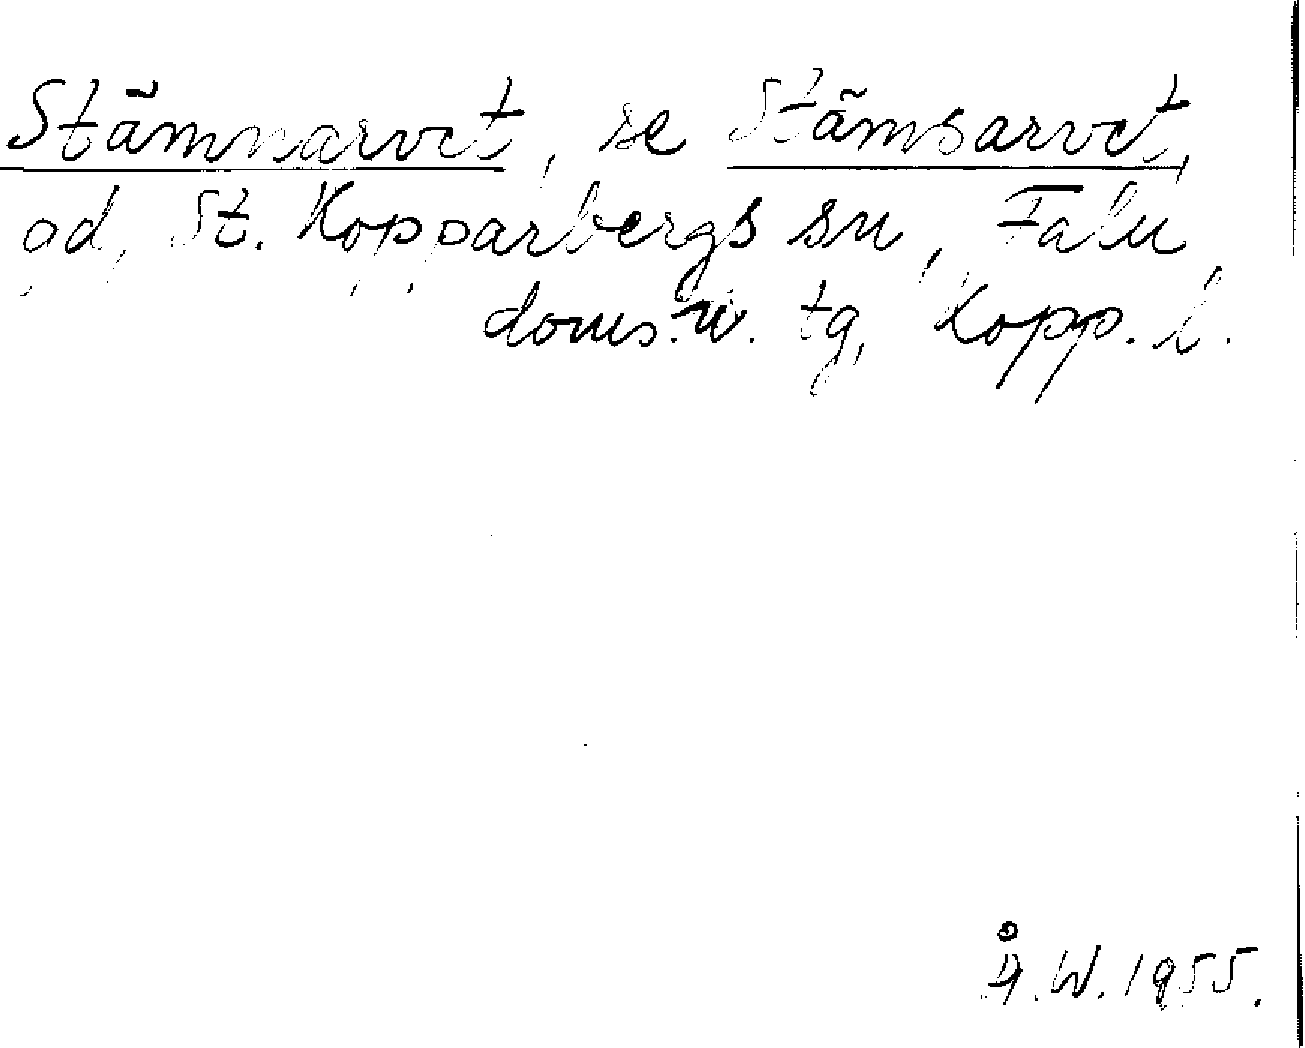 Stämnarvet, se Stämsarvet,
gd, St. Kopparbergs sn, Falu
doms. tg, Kopp. l.
Å.W. 1955.